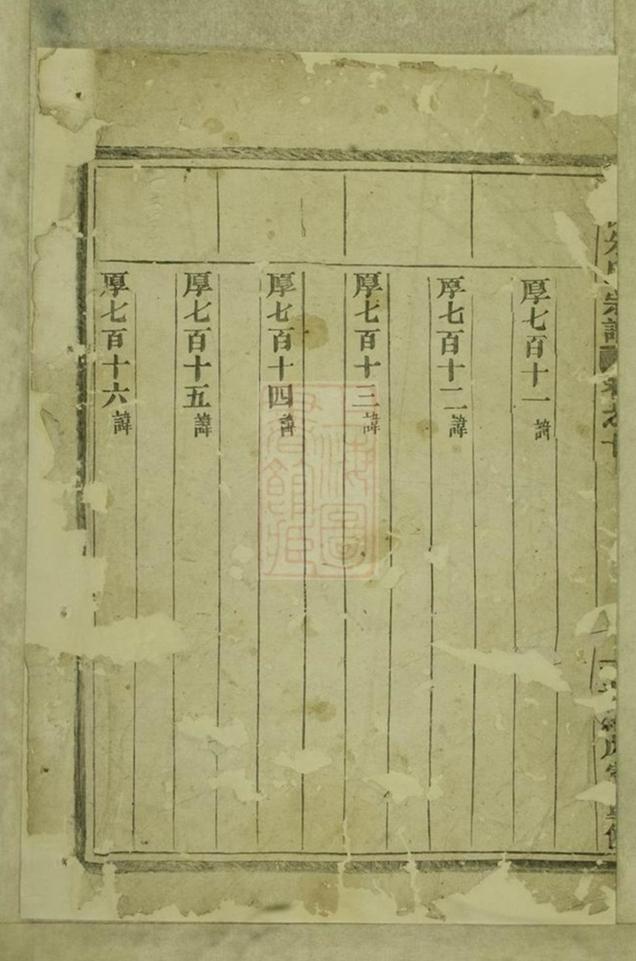 氏宗譜 卷之十
厚七百十一 諱
厚七百十二 諱
厚七百十三 諱
厚七百十四 諱
厚七百十五 諱
厚七百十六 諱
上海圖書館藏